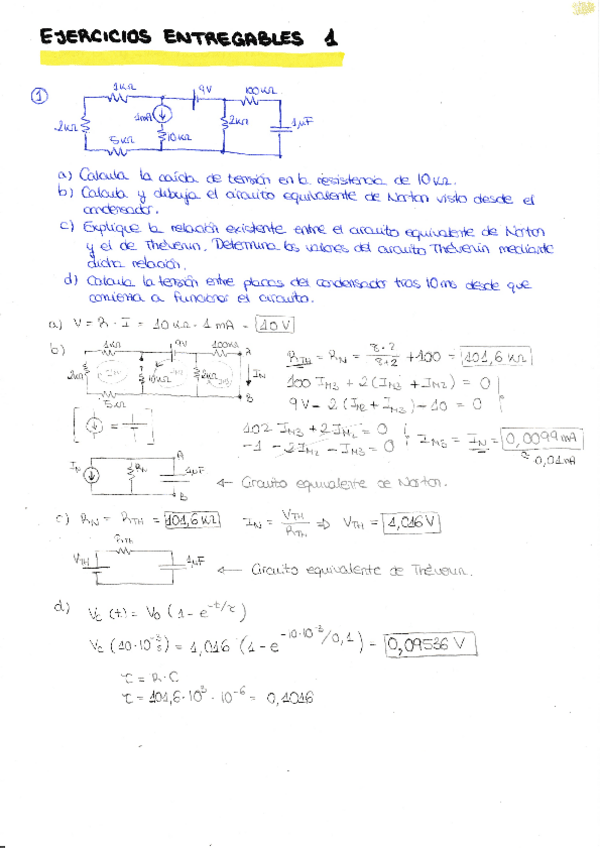 EJERCICIOS ENTREGABLES 1
①
1KΩ
9V
100KΩ
2KΩ
1mA
10KΩ
2KΩ
1µF
5KΩ
a) Calcula la caída de tensión en la resistencia de 10KΩ.
b) Calcula y dibuja el circuito equivalente de Norton visto desde el
condensador.
c) Explique la relación existente entre el circuito equivalente de Norton
y el de Thévenin. Determina los valores del circuito Thévenin mediante
dicha relación.
d) Calcula la tensión entre placas del condensador tras 10ms desde que
comienza a funcionar el circuito.
a) V = R · I = 10KΩ · 1mA = 10V
b)
1KΩ
9V
100KΩ
A
2KΩ
10KΩ
2KΩ
IN
5KΩ
B
RTH = RN = 8·2/8+2 + 100 = 101,6 KΩ
100 IM3 + 2(IM3 + IM2) = 0
102 IM3 + 2IM2 = 0
-1 - 2IM2 - IM3 = 0
IM3 = IN = 0,0099mA
≈ 0,01mA
IN
RN
A
1µF
B
← Circuito equivalente de Norton.
c) RN = RTH = 101,6KΩ IN = VTH/RTH ⇒ VTH = 1,016V
RTH
VTH
1µF
← Circuito equivalente de Thévenin.
d) Vc(t) = V0 (1 - e^-t/τ)
Vc(10·10^-3 s) = 1,016 (1 - e^-10·10^-3/0,1) = 0,09536 V
τ = R·C
τ = 101,6·10^3 · 10^-6 = 0,1016